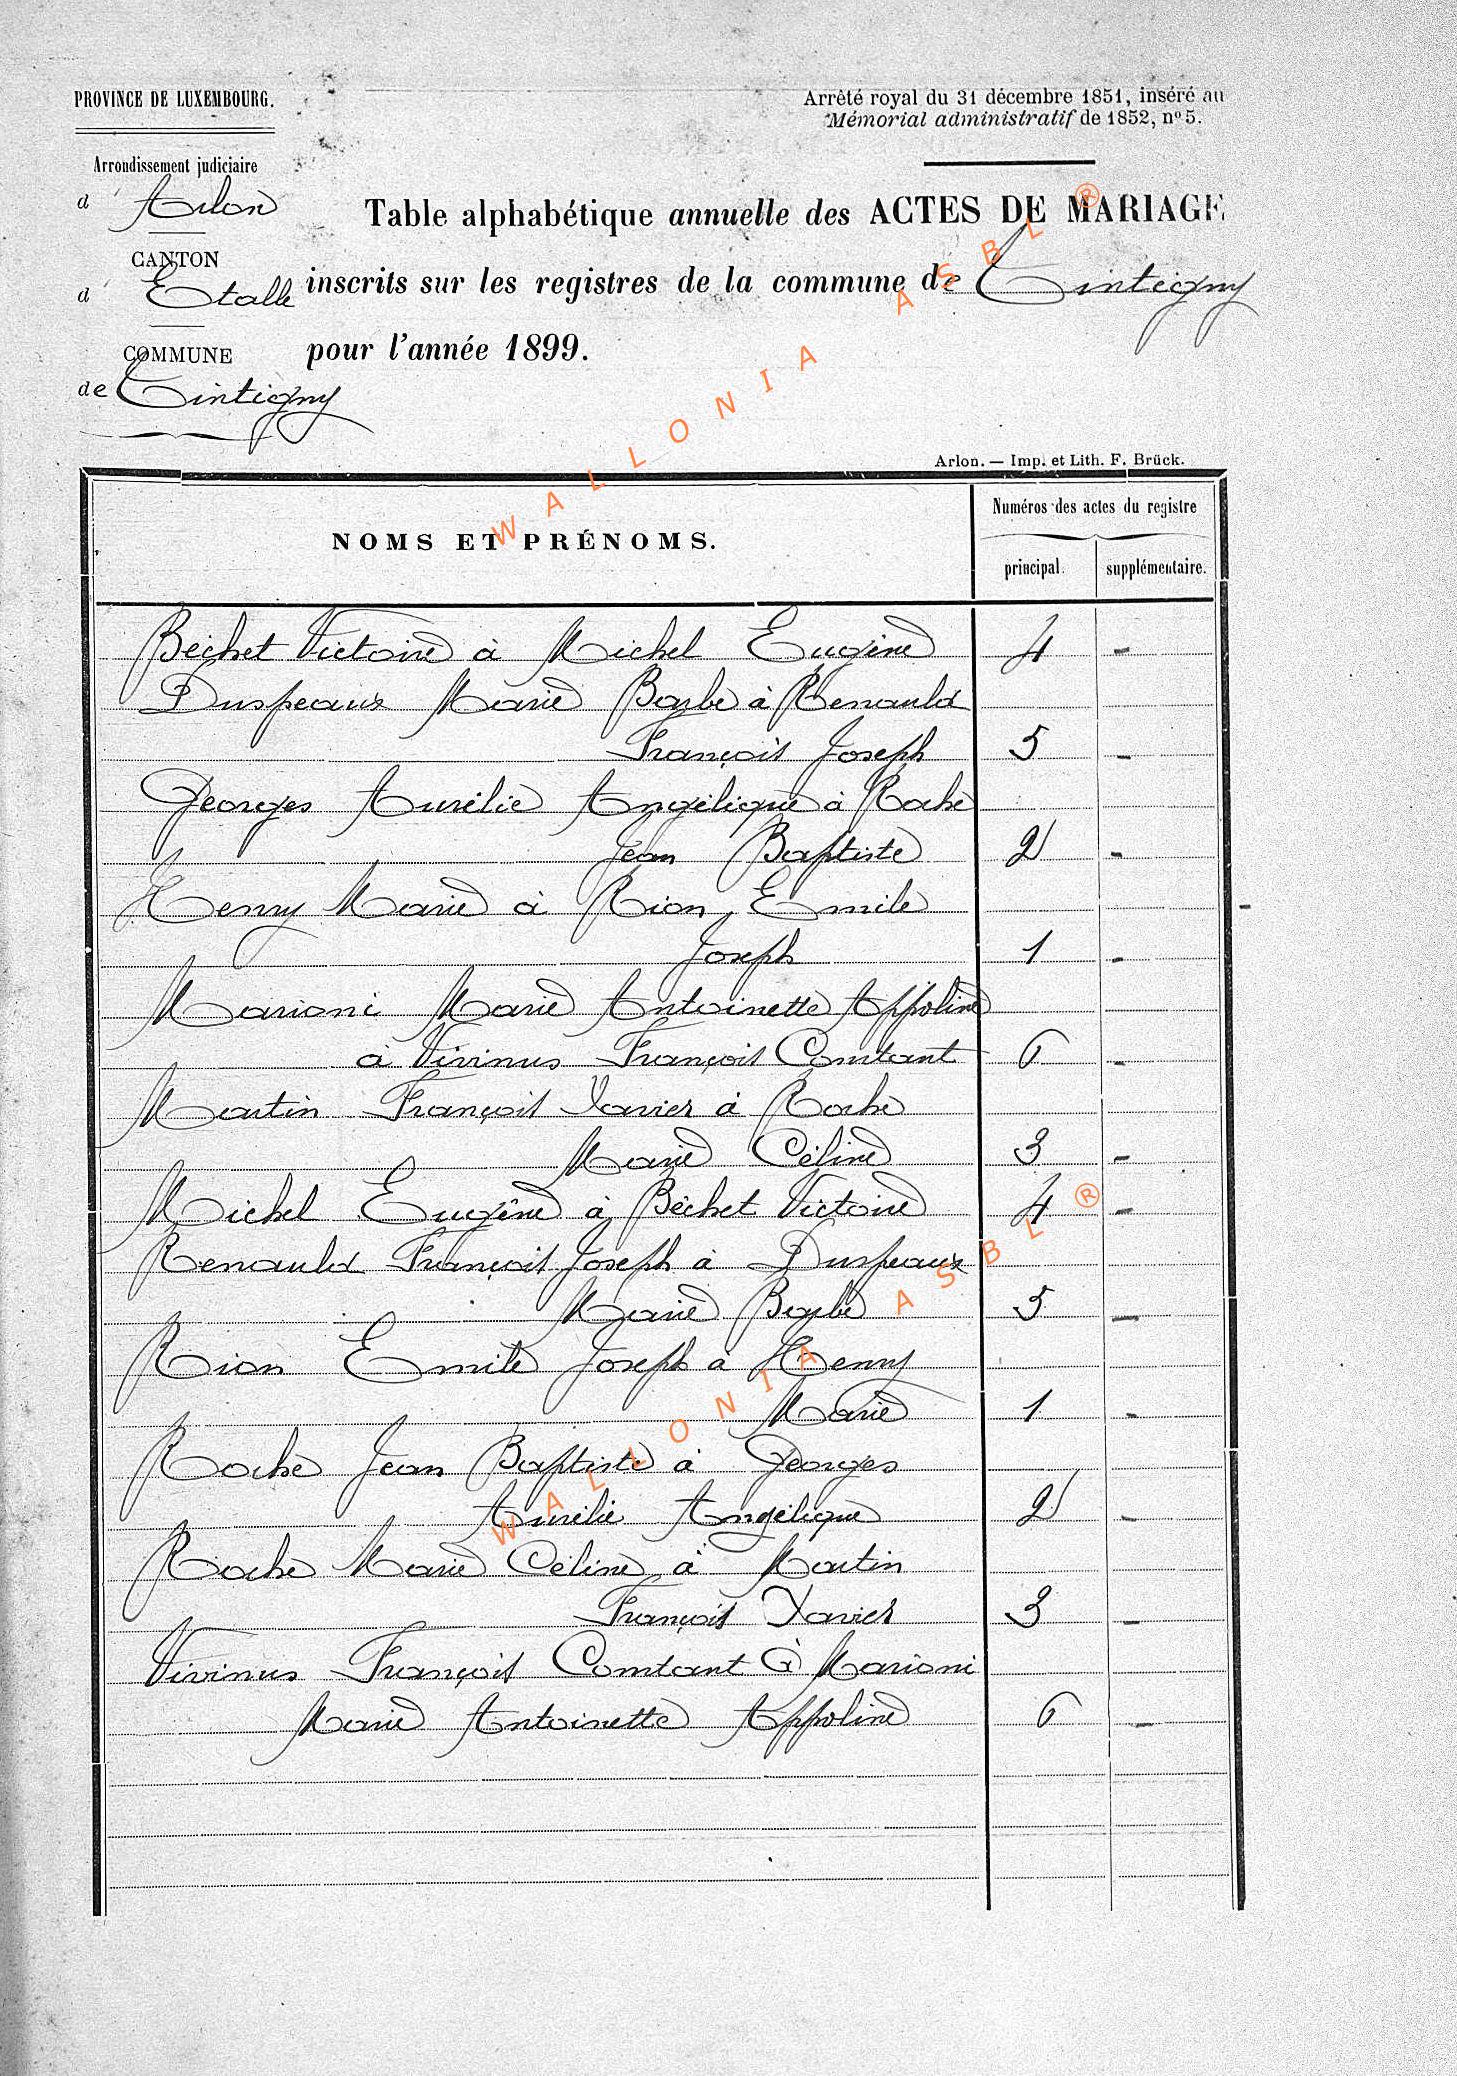 PROVINCE DE LUXEMBOURG.
Arrêté royal du 31 décembre 1851, inséré au
Mémorial administratif de 1852, nº 5.
Arrondissement judiciaire
d' Arlon
Table alphabétique annuelle des ACTES DE MARIAGE
CANTON
d' Etalle
inscrits sur les registres de la commune de Tintigny
COMMUNE
pour l'année 1899.
de Tintigny
Arlon. — Imp. et Lith. F. Brück.
NOMS ET PRÉNOMS.
Numéros des actes du registre
principal.
supplémentaire.
Béchet Victoire à Michel Eugène 4 -
Duspeaux Marie Barbe à Renauld
François Joseph 5 -
Georges Aurélie Angélique à Roche
Jean Baptiste 2 -
Henry Marie à Rion Emile
Joseph 1 -
Marioni Marie Antoinette Appoline
à Vivinus François Constant 6 -
Martin François Xavier à Roche
Marie Céline 3 -
Michel Eugène à Béchet Victoire 4 -
Renauld François Joseph à Duspeaux
Marie Barbe 5 -
Rion Emile Joseph à Henry
Marie 1 -
Roche Jean Baptiste à Georges
Aurélie Angélique 2 -
Roche Marie Céline à Martin
François Xavier 3 -
Vivinus François Constant à Marioni
Marie Antoinette Appoline 6 -
WALLONIA ASBL ®
WALLONIA ASBL ®